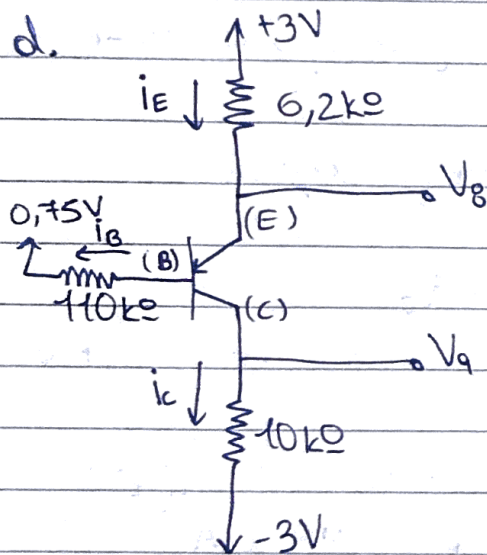 d.
+3V
iE
6,2kΩ
V8
0,75V
iB
(B)
(E)
110kΩ
(C)
V9
iC
10kΩ
-3V